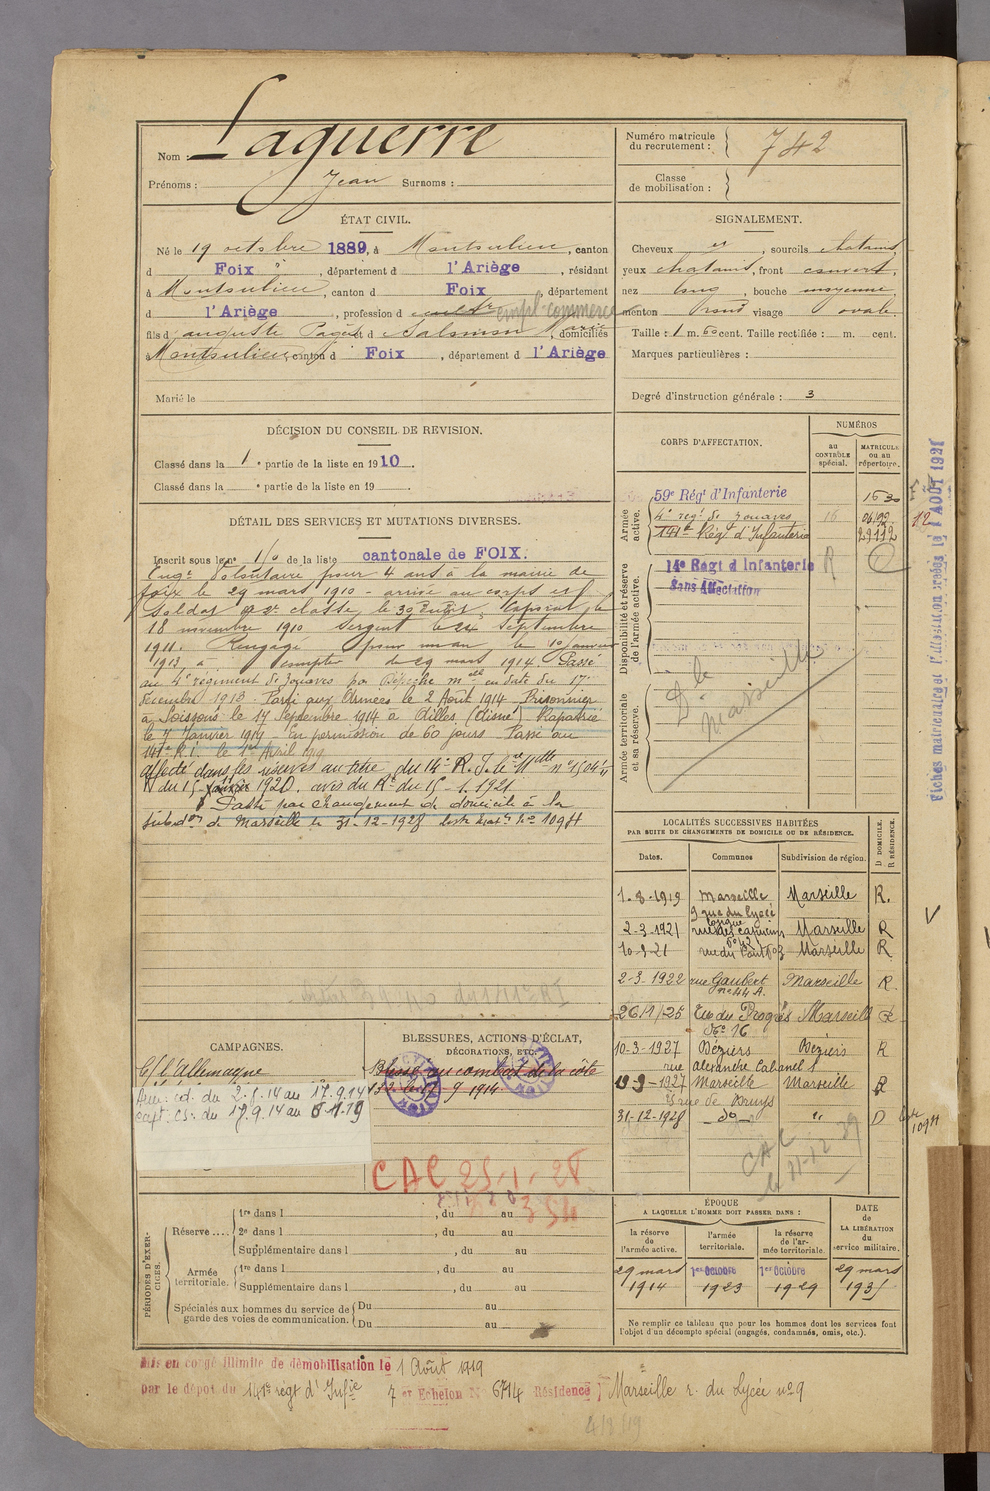 Nom : Laguerre
Prénoms : Jean Surnoms :
Numéro matricule du recrutement : 742
Classe de mobilisation :
ÉTAT CIVIL.
Né le 19 octobre 1889, à Montoulieu, canton
d Foix, département d l'Ariège, résidant
à Montoulieu, canton d Foix, département
d l'Ariège, profession d cultr empl. commerce
fils d auguste Pagès et d Salomon Marie, domiciliés
Montoulieu, canton d Foix, département d l'Ariège
Marié le
SIGNALEMENT.
Cheveux et, sourcils chatains
yeux chatains, front couvert,
nez long, bouche moyenne,
menton rond visage ovale.
Taille : 1 m. 60 cent. Taille rectifiée : m. cent.
Marques particulières :
Degré d'instruction générale : 3
DÉCISION DU CONSEIL DE REVISION.
Classé dans la 1e partie de la liste en 1910.
Classé dans la e partie de la liste en 19
DÉTAIL DES SERVICES ET MUTATIONS DIVERSES.
Inscrit sous le no de la liste cantonale de FOIX.
Engé Volontaire pour 4 ans à la mairie de
foix le 29 mars 1910 - arrivé au corps et
Soldat de 2e classe, le 30 dudit, Caporal le
18 novembre 1910 Sergent le 24 Septembre
1911. Rengagé pour un an, le 10 janvier
1913, à compter du 29 mars 1914 Passé
au 4e régiment de Zouaves par Dépêche mlle en date du 17
décembre 1913 - Parti aux Armées le 2 Août 1914. Prisonnier
à Soissons le 17 Septembre 1914 à (Aisne) Rapatrié
le 7 Janvier 1919 - En permission de 60 jours - Passé au
141e R.I. le 1er Avril 1919
Affecté dans les réserves au titre du 14e R.I. le
du 15 Janvier 1920. avis du Rt du 15-1.1921
Passé par changement de domicile à la
subdon de Marseille le 31-12-1928 1094
CORPS D'AFFECTATION.
NUMÉROS
au CONTRÔLE spécial.
MATRICULE ou au répertoire.
Armée active.
59e Régt d'Infanterie 1630
4e régt de Zouaves 16
141e Régt d'Infanterie 29112
Disponibilité et réserve de l'armée active.
14e Regt d Infanterie
Sans Affectation
Armée territoriale et sa réserve.
Dle Marseille
LOCALITÉS SUCCESSIVES HABITÉES
PAR SUITE DE CHANGEMENTS DE DOMICILE OU DE RÉSIDENCE.
Dates. Communes Subdivision de région. D DOMICILE. R RÉSIDENCE.
1-8-1919 Marseille Marseille R.
9 rue du Lycée
2-3-1921 rue des capucins Marseille R
10-9-21 rue du Marseille R
2-3-1922 rue Gaubert Marseille R
no 44 A.
26/1/25 Rue du Progrès Marseille R
No 16
10-3-1927 Béziers Béziers R
rue Alexandre Cabanel 1
1927 Marseille Marseille R
rue de Bruys
31-12-1928 do " D
1094
CAMPAGNES.
C/ l'Allemagne
Aux: cd. du 2.8.14 au 17.9.14
Capt. Cs: du 17.9.14 au 6.1.19
BLESSURES, ACTIONS D'ÉCLAT,
DÉCORATIONS, ETC.
Blessé au combat de la côte
132 le 17 9 1914
CAC 25-1-28
354
PÉRIODES D'EXERCICES.
Réserve....
1re dans l , du au
2e dans l , du au
Supplémentaire dans l , du au
Armée territoriale.
1re dans l , du au
Supplémentaire dans l , du au
Spéciales aux hommes du service de garde des voies de communication.
Du au
Du au
ÉPOQUE
A LAQUELLE L'HOMME DOIT PASSER DANS :
la réserve de l'armée active.
l'armée territoriale.
la réserve de l'armée territoriale.
DATE de LA LIBÉRATION du service militaire.
29 mars 1914
1er Octobre 1923
1er Octobre 1929
29 mars 193
Ne remplir ce tableau que pour les hommes dont les services font
l'objet d'un décompte spécial (engagés, condamnés, omis, etc.).
Mis en congé illimité de démobilisation le 1 Août 1919
par le dépôt du 141e régt d'Infie 7er Echelon N 6714 Résidence Marseille r. du Lycée no 9
4/8/19